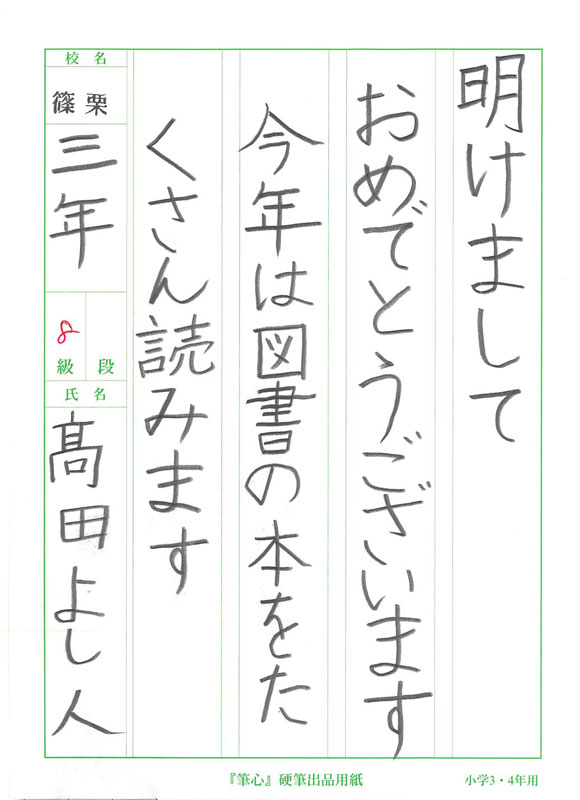 明けまして
おめでとうございます
今年は図書の本をた
くさん読みます
校名
篠栗
三年
段
8級
氏名
髙田よし人
『筆心』硬筆出品用紙
小学3・4年用